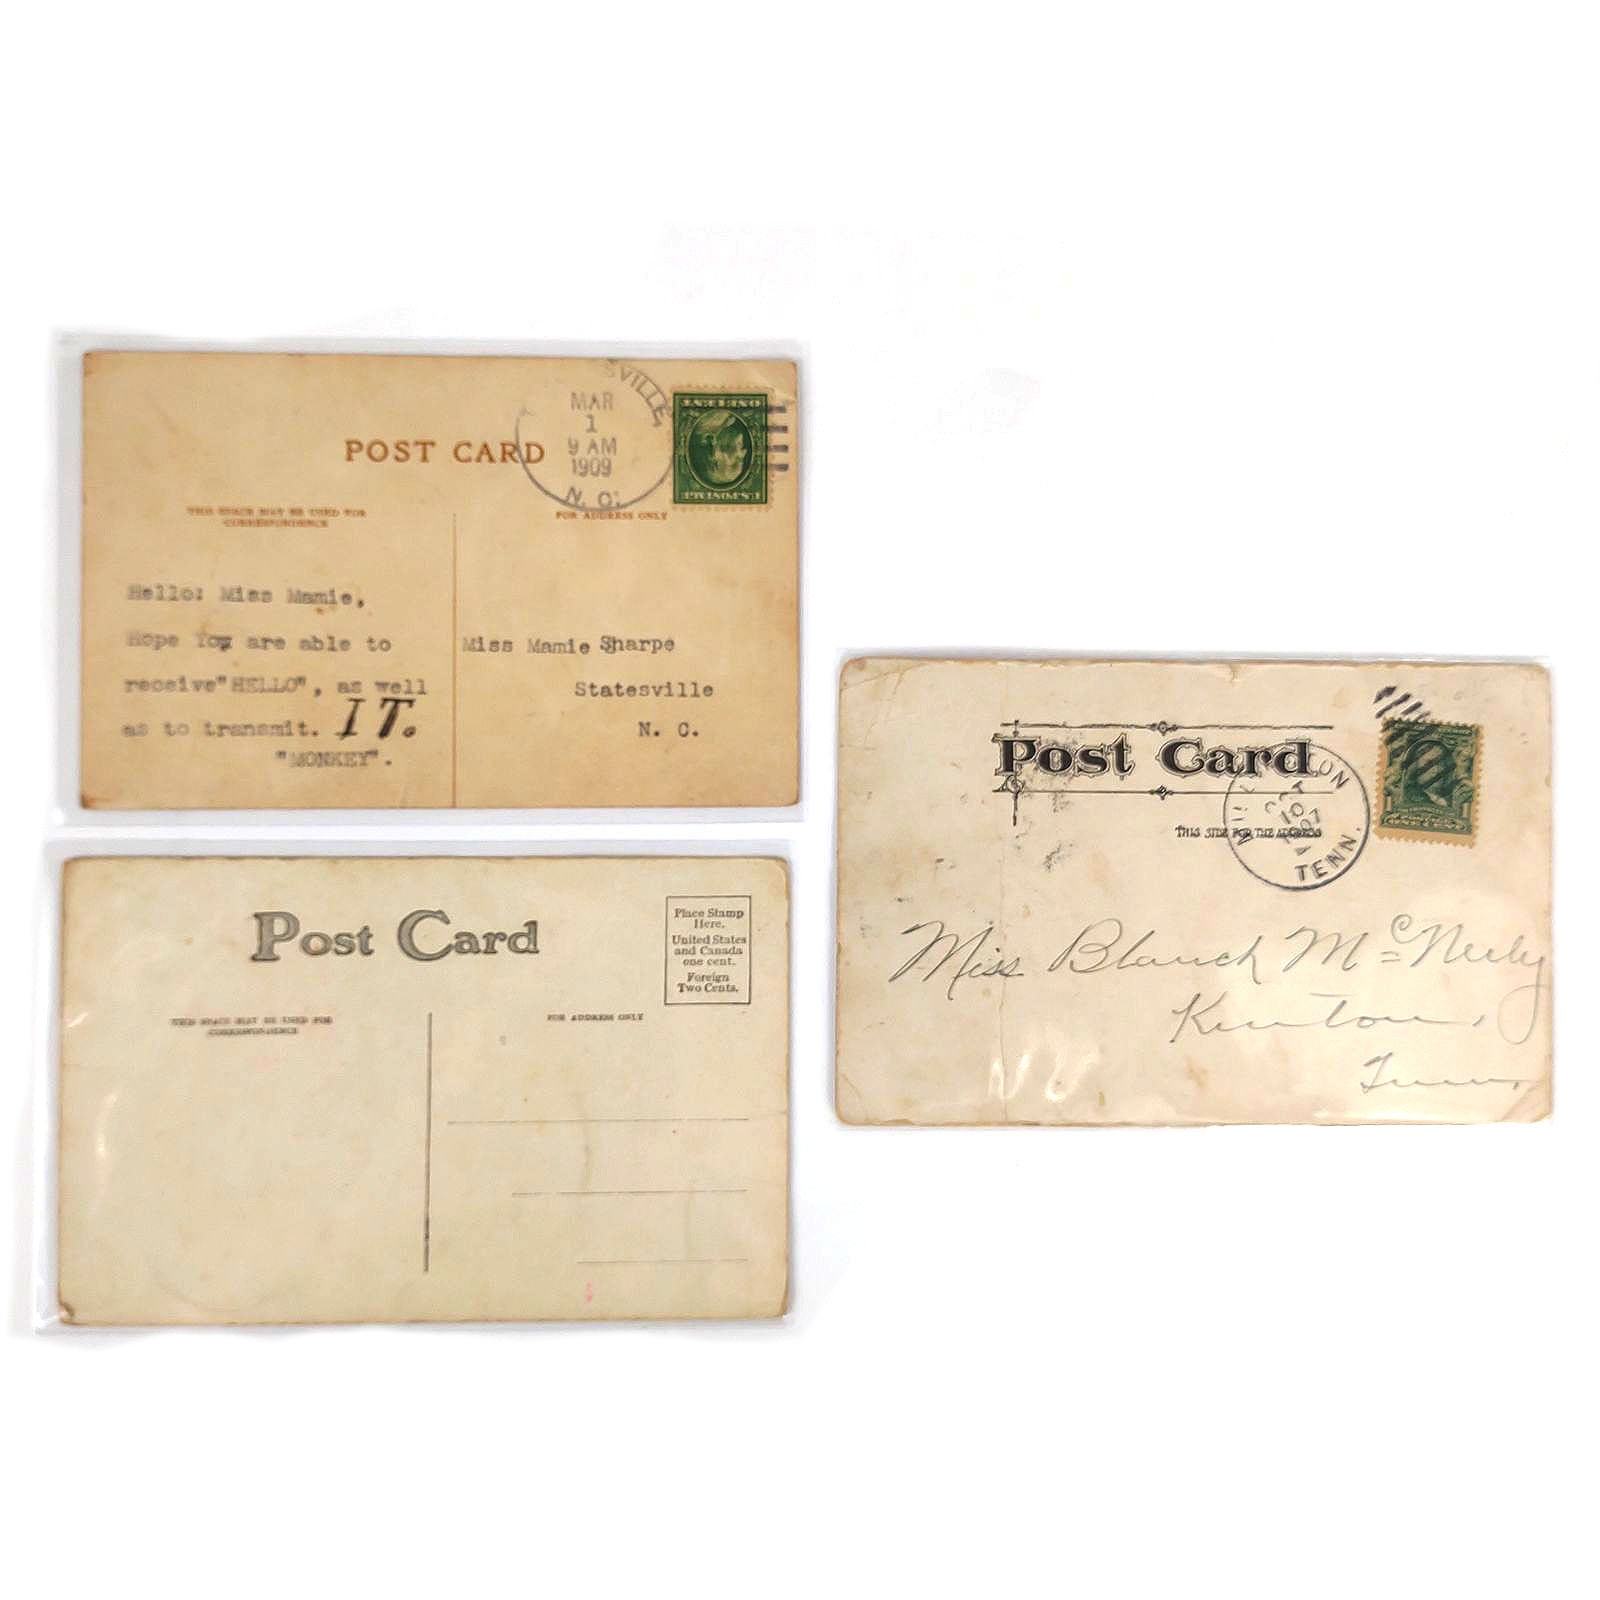 SVILLE
MAR
1
9 AM
1909
N. C.
POST CARD
THIS SPACE MAY BE USED FOR
CORRESPONDENCE
FOR ADDRESS ONLY
ONE CENT
U.S. POSTAGE
Hello: Miss Mamie,
Hope You are able to
receive"HELLO", as well
as to transmit. IT.
"MONKEY".
Miss Mamie Sharpe
Statesville
N. C.
Post Card
Place Stamp
Here.
United States
and Canada
one cent.
Foreign
Two Cents.
THIS SPACE MAY BE USED FOR
CORRESPONDENCE
FOR ADDRESS ONLY
Post Card
THIS SIDE FOR THE ADDRESS
OCT
10
1907
TENN.
1 1
ONE CENT
Miss Blanch McNeely
Kenton,
Tenn.